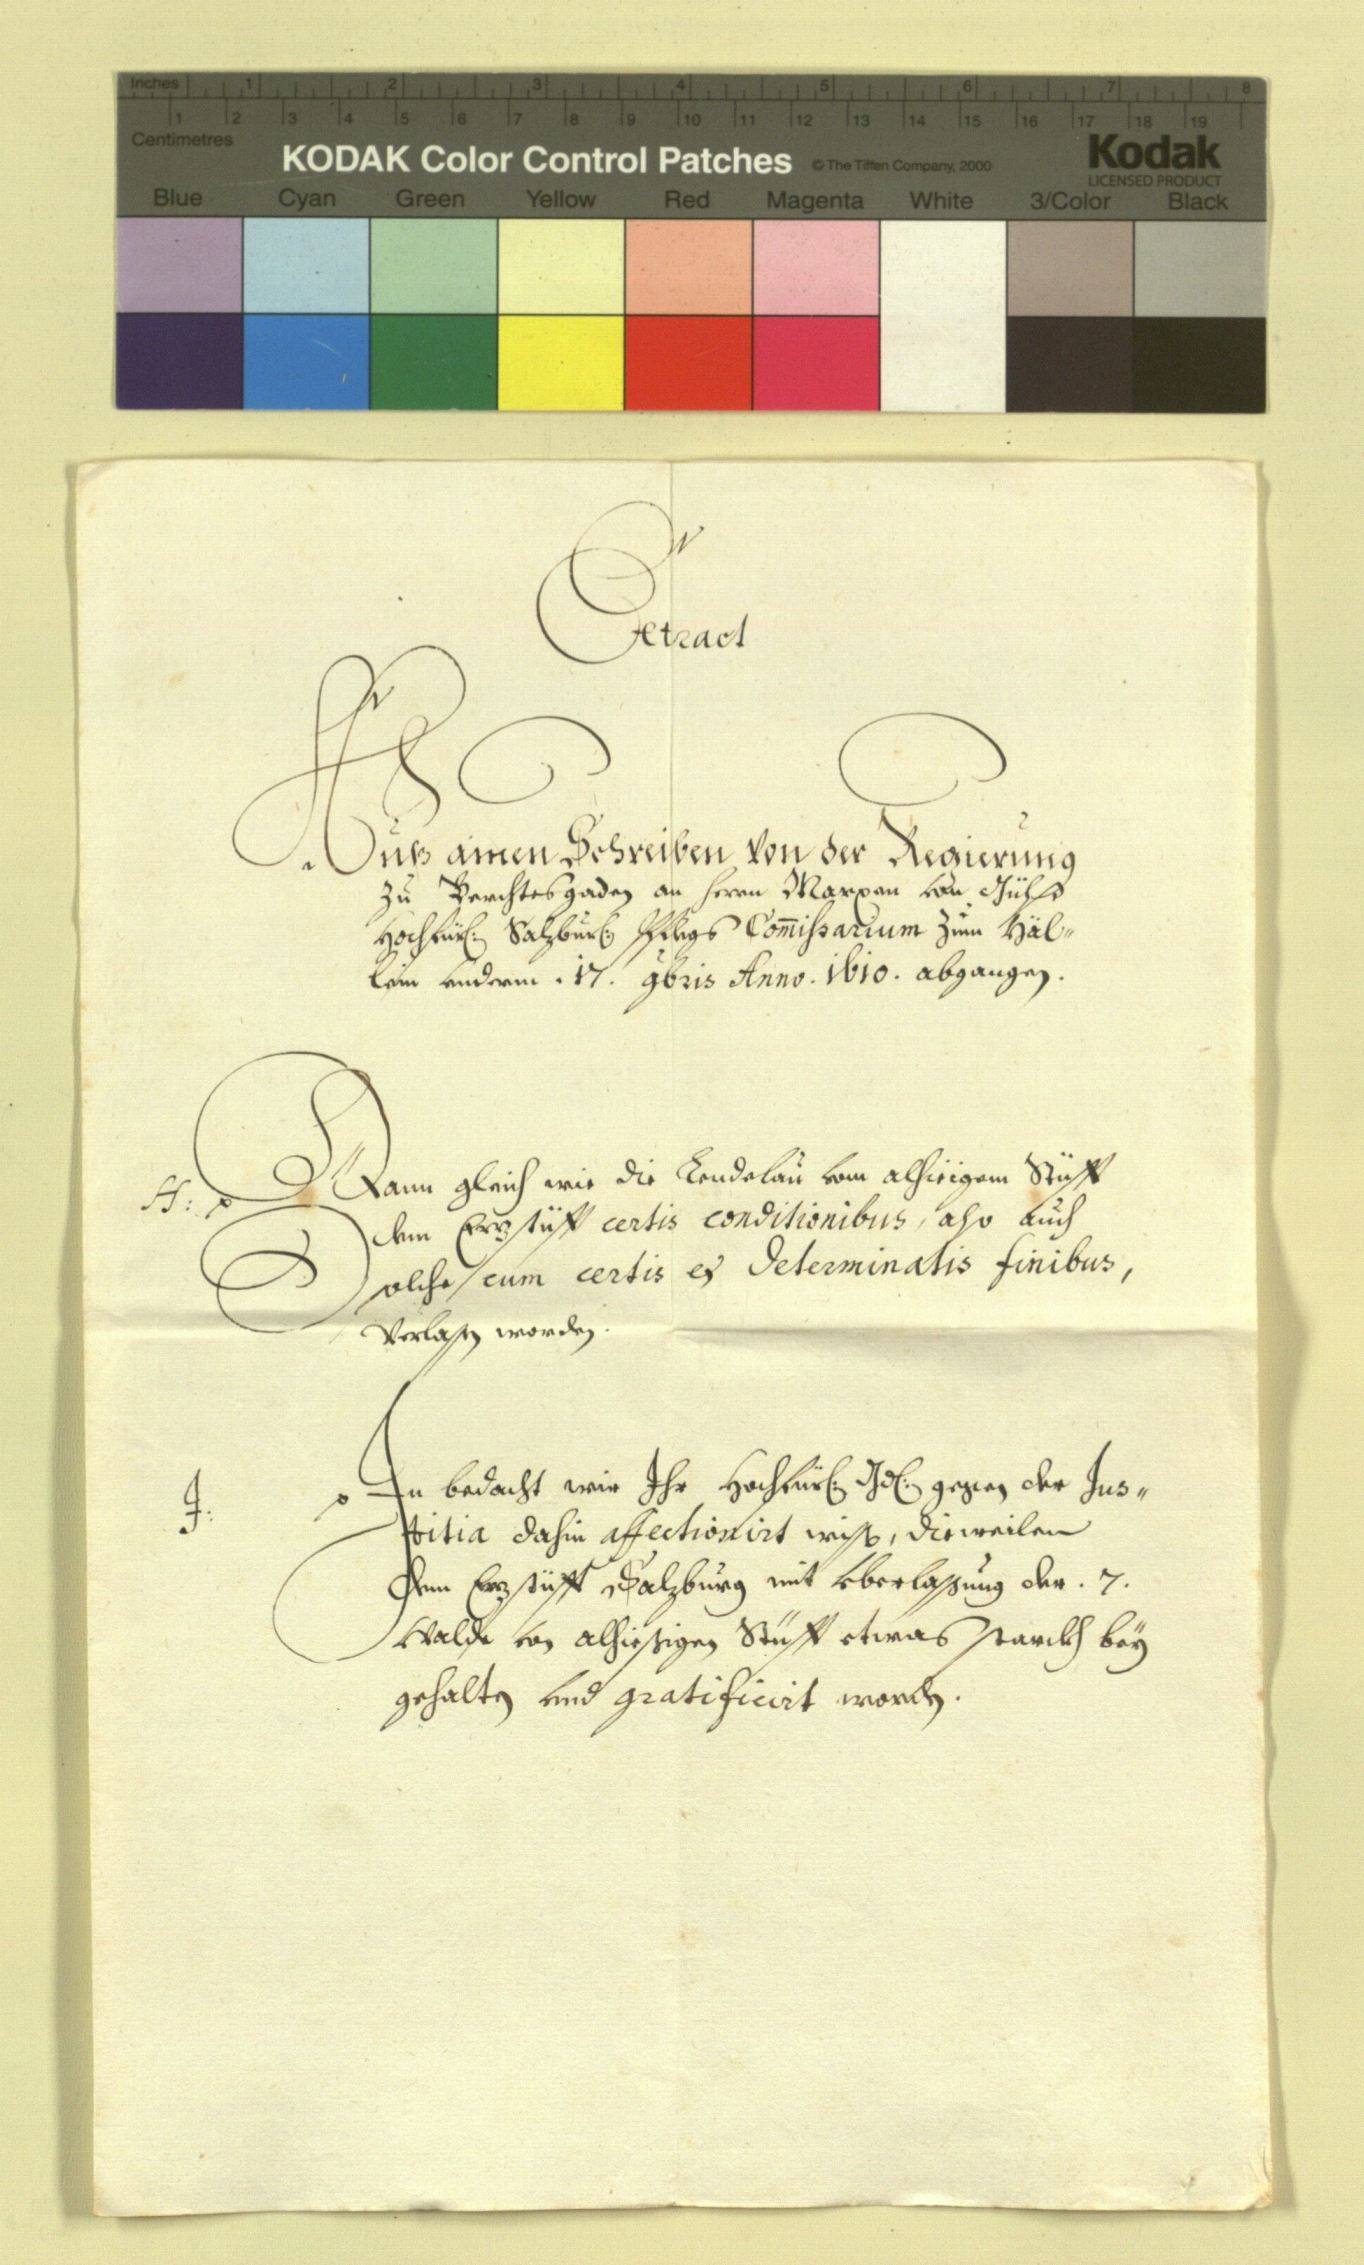 Inches 1 2 3 4 5 6 7 8
Centimetres 1 2 3 4 5 6 7 8 9 10 11 12 13 14 15 16 17 18 19
KODAK Color Control Patches © The Tiffen Company, 2000 Kodak
LICENSED PRODUCT
Blue Cyan Green Yellow Red Magenta White 3/Color Black
Extract
Auß ainen Schreiben von der Regierung
zu Berchtesgaden an herrn Marxen von
Hochfürl: Salzburg: Pflegs Com̄issarium zum Häl„
lein underm .17. 9bris Anno. 1610. abgangen.
H: Dann gleich wie die vom alhieigem Stüfft
dem Erzstüfft certis conditionibus, also auch
Solche cum certis et determinatis finibus,
verlassen worden.
J: In bedacht wir Ihr Hochfürl: gegen der Jus„
titia dahin affectionirt , dieweilen
dem Erzstüfft Salzburg mit uberlassung der .7.
Wälde von alhiesigen Stüfft etwas starckh bey
gehalten und gratificirt worden.